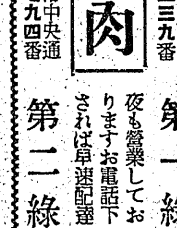 三九番
第
綠
肉
夜も營業してお
りますお電話下
されば早速配達
中央通
九四番
第二綠